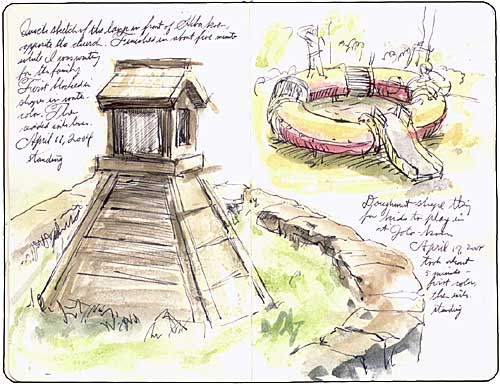 Quick sketch of the in front of
opposite the church. Finished in about five minutes
while I was waiting
for the family.
First blocked in
shapes in water-
color. Then
added ink lines.
April 11, 2004
standing
Doughnut-shape thing
for kids to play in
at
April 17, 2004
took about
5 minutes -
first color,
then ink.
standing